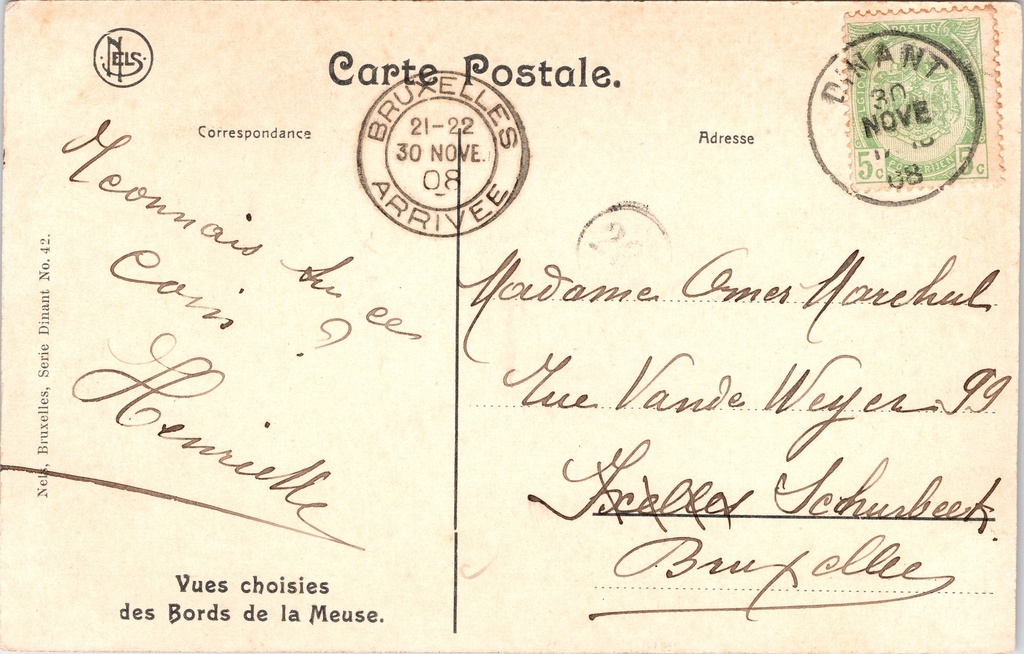 NELS
Carte Postale.
Correspondance
Adresse
BRUXELLES
21-22
30 NOVE.
08
ARRIVÉE
POSTES
5c 5c
DINANT
30
NOVE
08
Reconnais
tu ce
coin ?
Henriette
Madame Omer Marchal
Rue Vande Weyer 99
Ixelles Schaerbeek
Bruxelles
Nels, Bruxelles, Serie Dinant No. 42.
Vues choisies
des Bords de la Meuse.